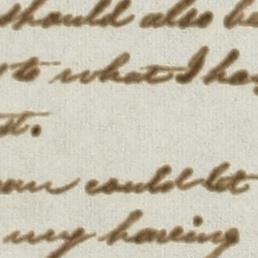 should also be
to what I have
st.
can could let
my having